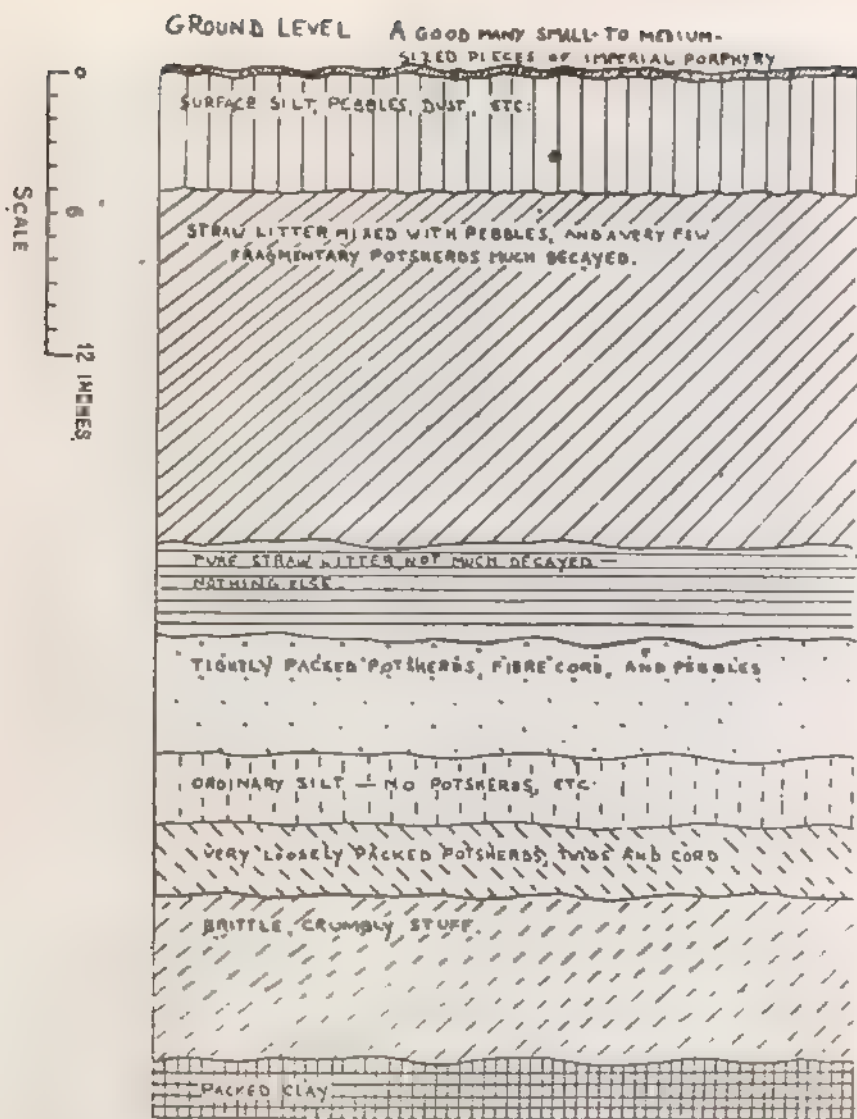 GROUND LEVEL
A GOOD MANY SMALL- TO MEDIUM-
SIZED PIECES OF IMPERIAL PORPHYRY
0
6
12 INCHES.
SCALE
SURFACE SILT, PEBBLES, DUST, ETC.
STRAW LITTER MIXED WITH PEBBLES, AND A VERY FEW
FRAGMENTARY POTSHERDS MUCH DECAYED.
PURE STRAW LITTER NOT MUCH DECAYED —
NOTHING ELSE
TIGHTLY PACKED POTSHERDS, FIBRE CORD, AND PEBBLES
ORDINARY SILT — NO POTSHERDS, ETC.
VERY LOOSELY PACKED POTSHERDS, TWIGS AND CORD
BRITTLE, CRUMBLY STUFF.
PACKED CLAY